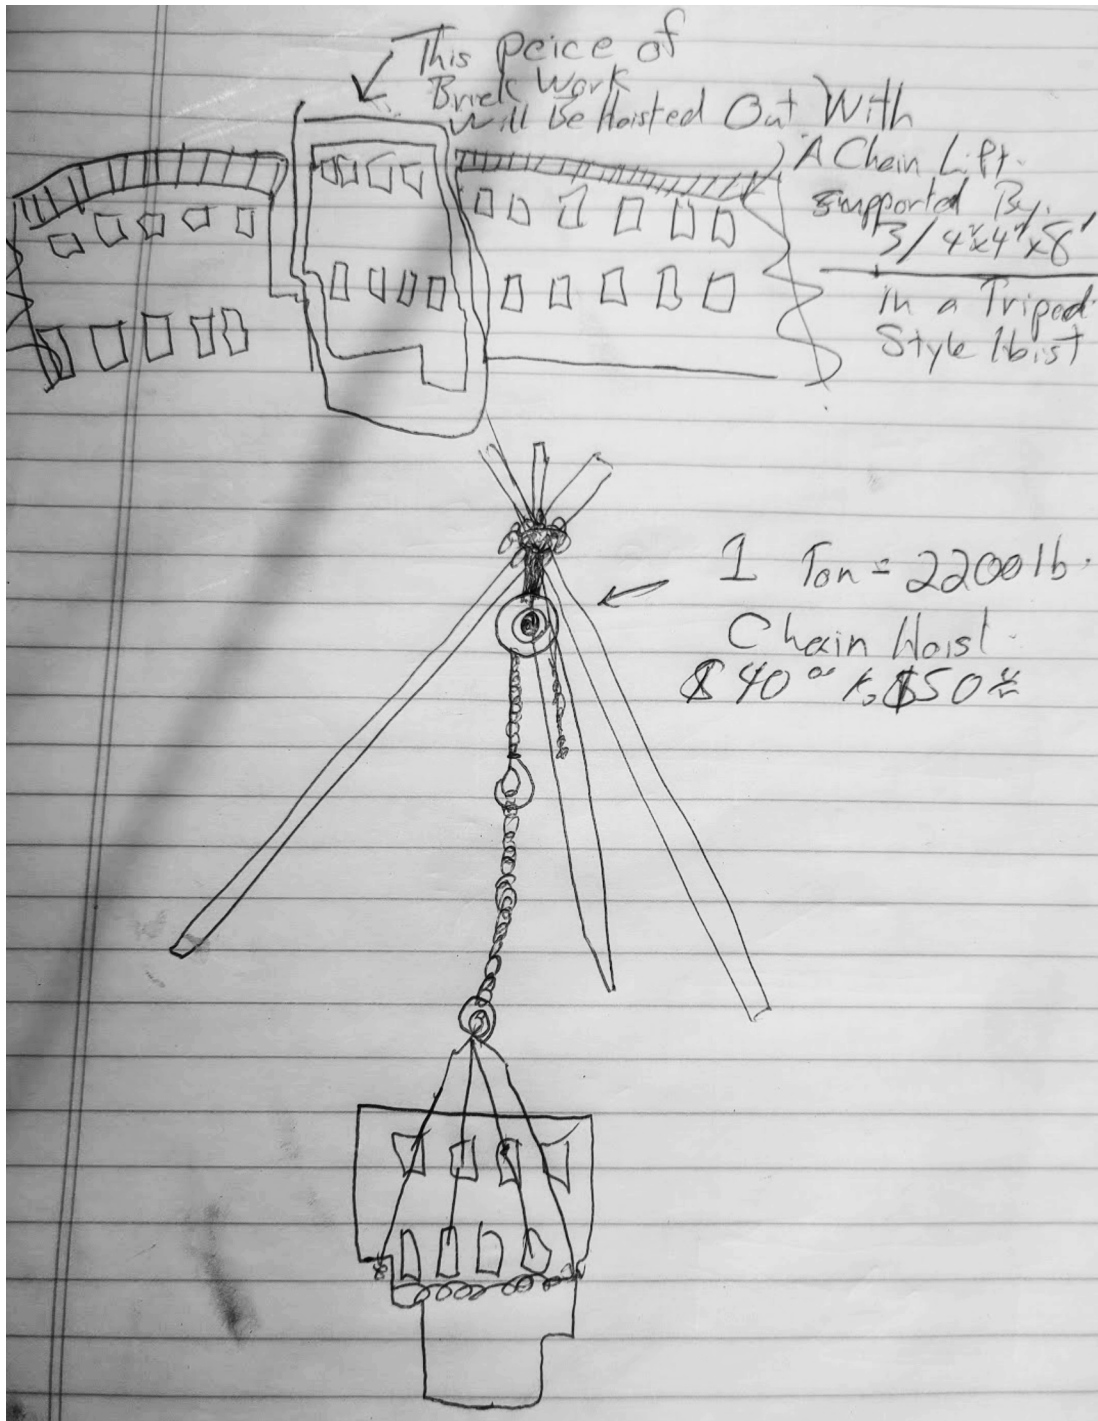 This peice of
Brick Work
will Be Hoisted Out With
A Chain Lift.
supported By.
3/ 4"x4"x8'
in a Tripod
Style Hoist
1 Ton = 2200 lb.
Chain Hoist.
$40 to $50